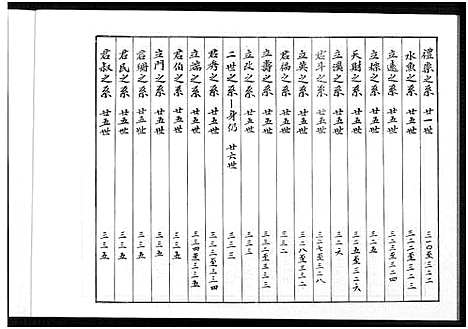 禮崇之系 廿一世 三一〇至三二二
水魚之系 廿五世 三二二至三二三
立遠之系 廿五世 三二三至三二四
立標之系 廿五世 三二五
天財之系 廿五世 三二五至三二六
立漢之系 廿五世 三二六
君斗之系 廿五世 三二七至三二八
立英之系 廿五世 三二八至三三二
君偈之系 廿五世 三三二
立壽之系 廿五世 三三二至三三三
立改之系 廿五世 三三三
二世之系—身仍 廿六世 三三三
君秀之系 廿五世 三三三至三三四
立滿之系 廿五世 三三四至三三五
君伯之系 廿五世 三三五
立門之系 廿五世 三三五
君珊之系 廿五世 三三五
君民之系 廿五世 三三五
君叔之系 廿五世 三三五